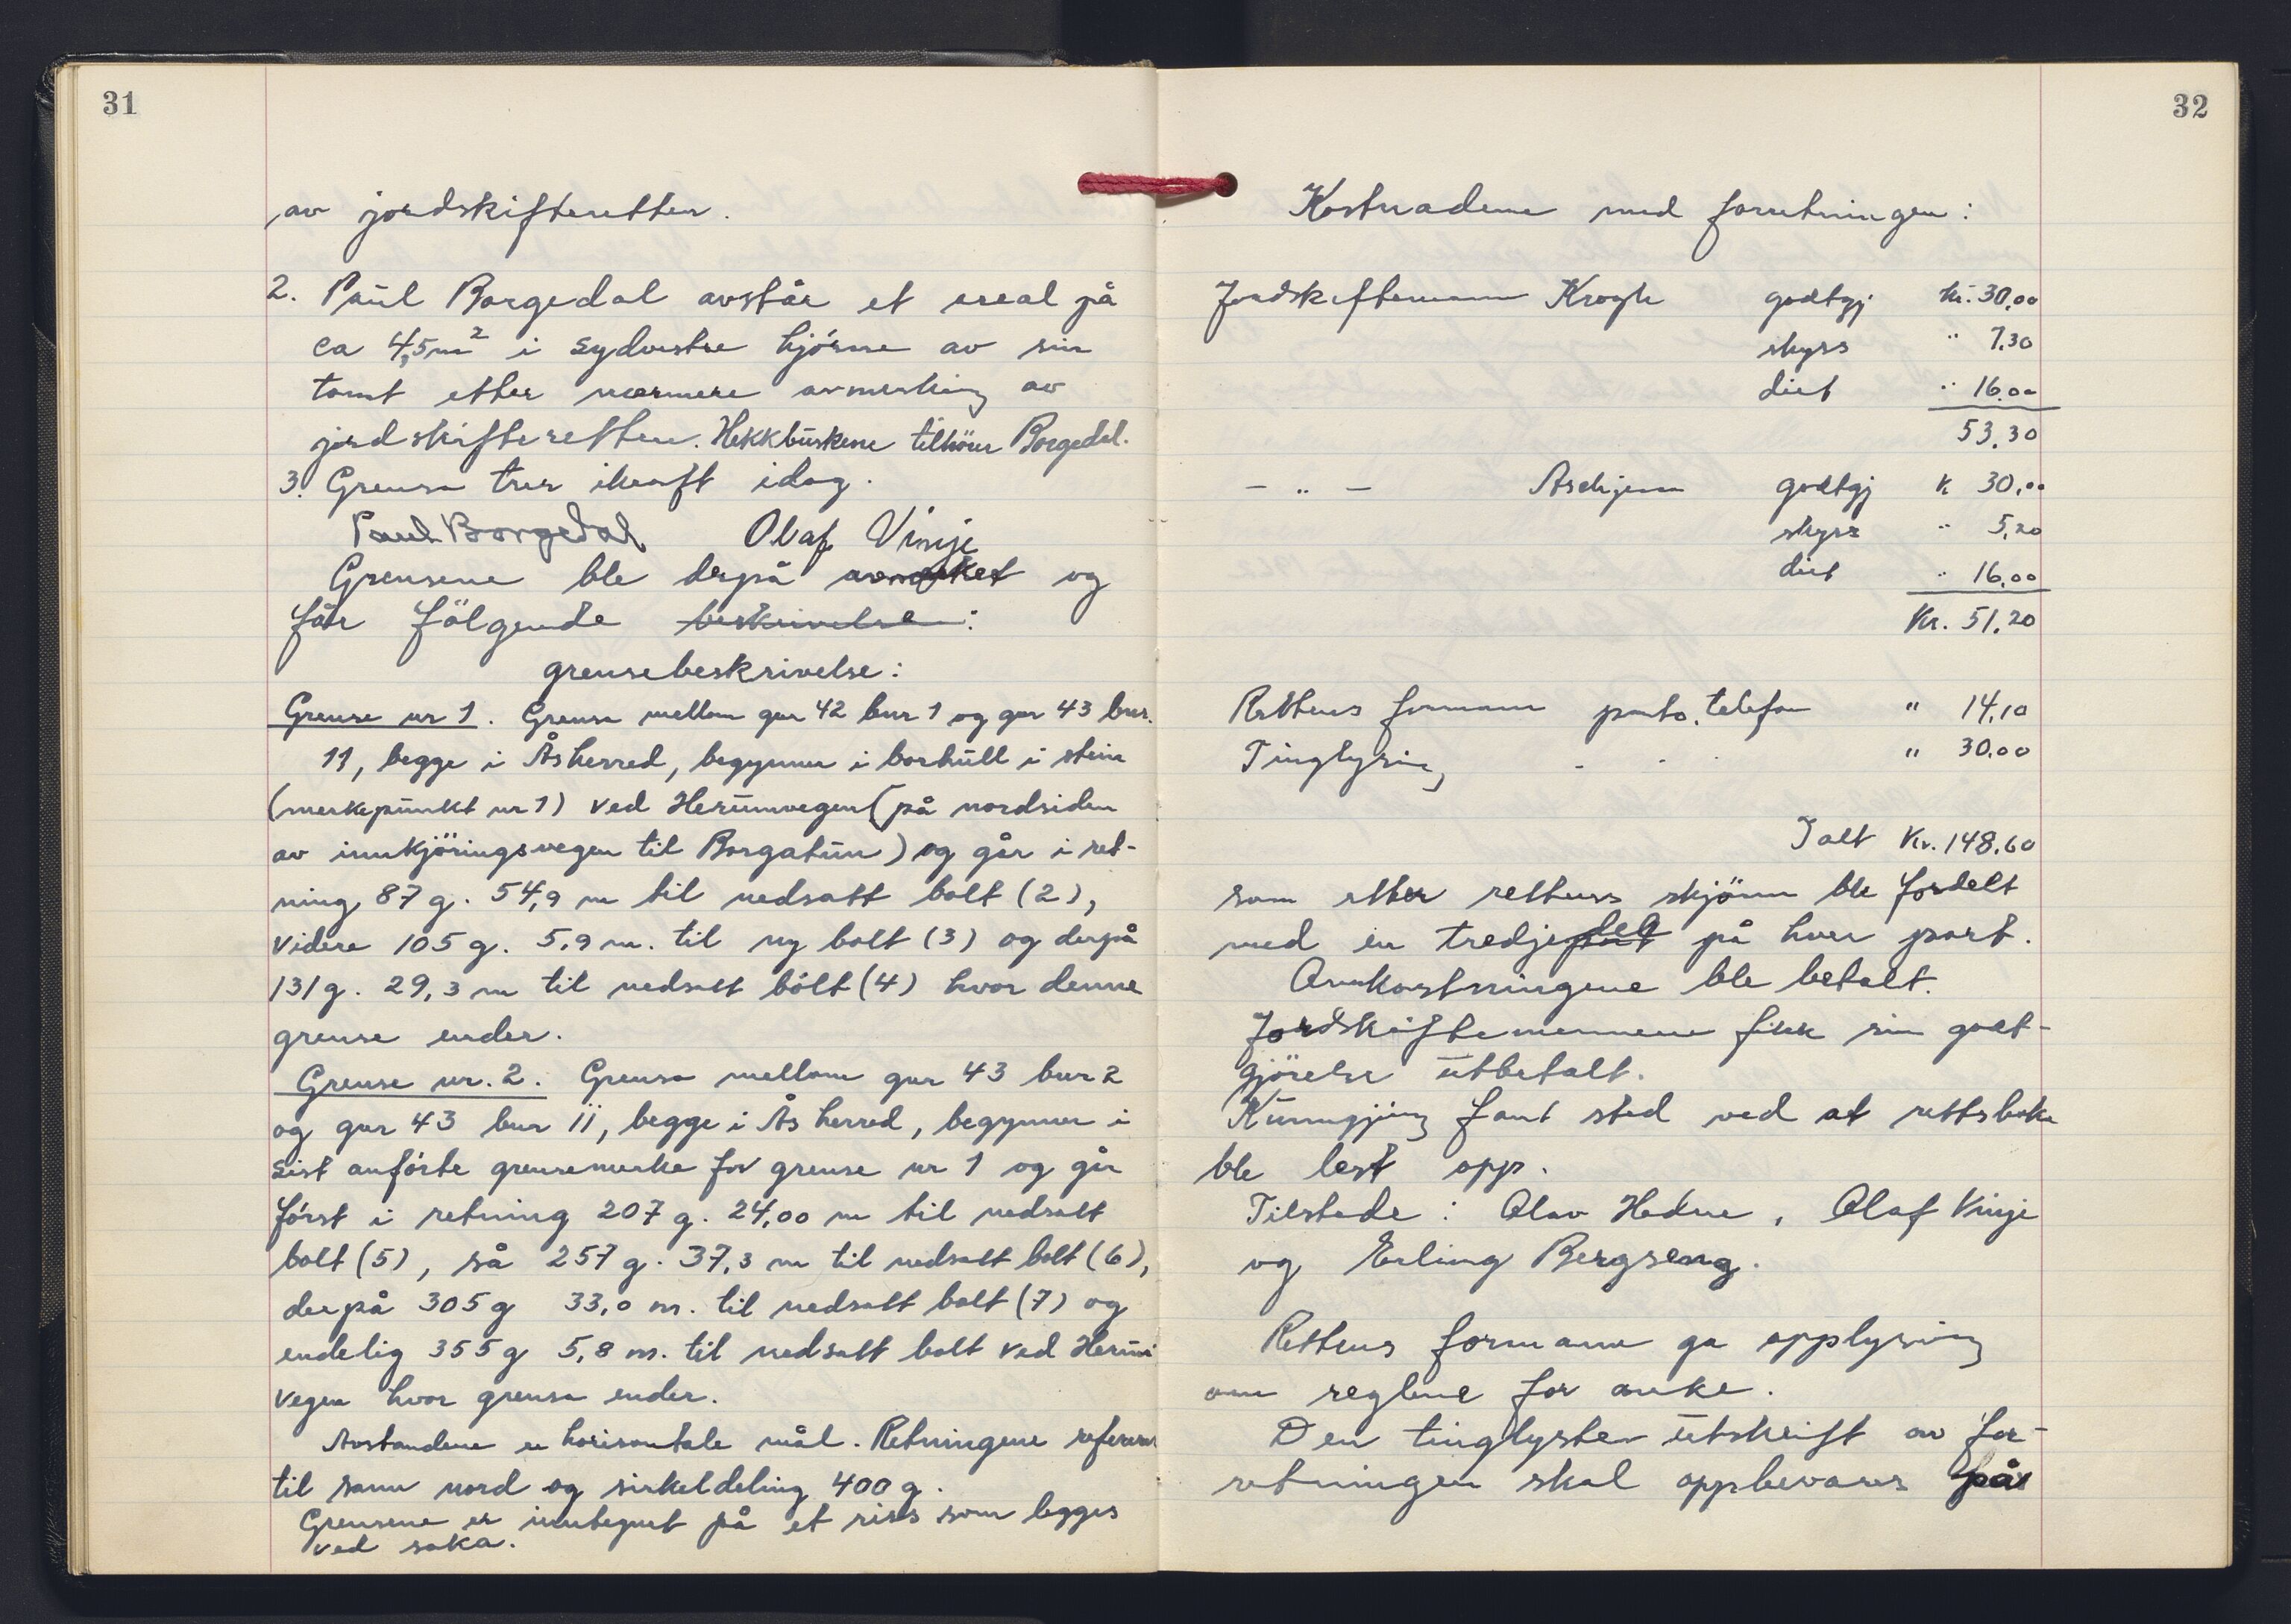 31
av jordskifteretten.
2. Paul Borgedal avstår et areal på
ca 4,5 m² i sydvestre hjörne av sin
tomt etter nærmere avmerking av
jordskifteretten. Hekkbuskene tilhörer Borgedal.
3. Grensa trer ikraft idag.
Paul Borgedal Olaf Vinje
Grensene ble derpå avmerket og
får fölgende beskrivelse:
grensebeskrivelse:
Grense nr 1. Grensa mellom gnr 42 bnr 1 og gnr 43 bnr.
11, begge i Ås herred, begynner i borhull i stein
(merkepunkt nr 1) ved Herumvegen (på nordsiden
av innkjöringsvegen til Borgatun) og går i ret-
ning 87 g. 54,9 m til nedsatt bolt (2),
videre 105 g. 5,9 m. til ny bolt (3) og derpå
131 g. 29,3 m til nedsatt bolt (4) hvor denne
grense ender.
Grense nr. 2. Grensa mellom gnr 43 bnr 2
og gnr 43 bnr 11, begge i Ås herred, begynner i
sist anförte grensemerke for grense nr 1 og går
först i retning 207 g. 24,00 m til nedsatt
bolt (5), så 257 g. 37,3 m til nedsatt bolt (6),
derpå 305 g 33,0 m. til nedsatt bolt (7) og
endelig 355 g 5,8 m. til nedsatt bolt ved Herum
vegen hvor grensa ender.
Avstandene er horisontale mål. Retningene referer
til sann nord og sirkeldeling 400 g.
Grensene er inntegnet på et riss som legges
ved saka.
32
Kostnadene med forretningen:
Jordskiftemann Krogh godtgj kr. 30,00
skyss " 7.30
diet " 16.00
53.30
– " – Aschjem godtgj k 30,00
skyss " 5,20
diet " 16.00
Kr. 51.20
Rettens formann porto, telefon " 14.10
Tinglysing " 30.00
I alt Kr. 148.60
som etter rettens skjönn ble fordelt
med en tredjedel på hver part.
Omkostningene ble betalt.
Jordskiftemennene fikk sin godt-
gjörelse utbetalt.
Kunngjöring fant sted ved at rettsboka
ble lest opp.
Tilstede: Olav Hedne, Olaf Vinje
og Erling Bergseng.
Rettens formann ga opplysning
om reglene for anke.
Den tinglyste utskrift av for-
retningen skal oppbevares på